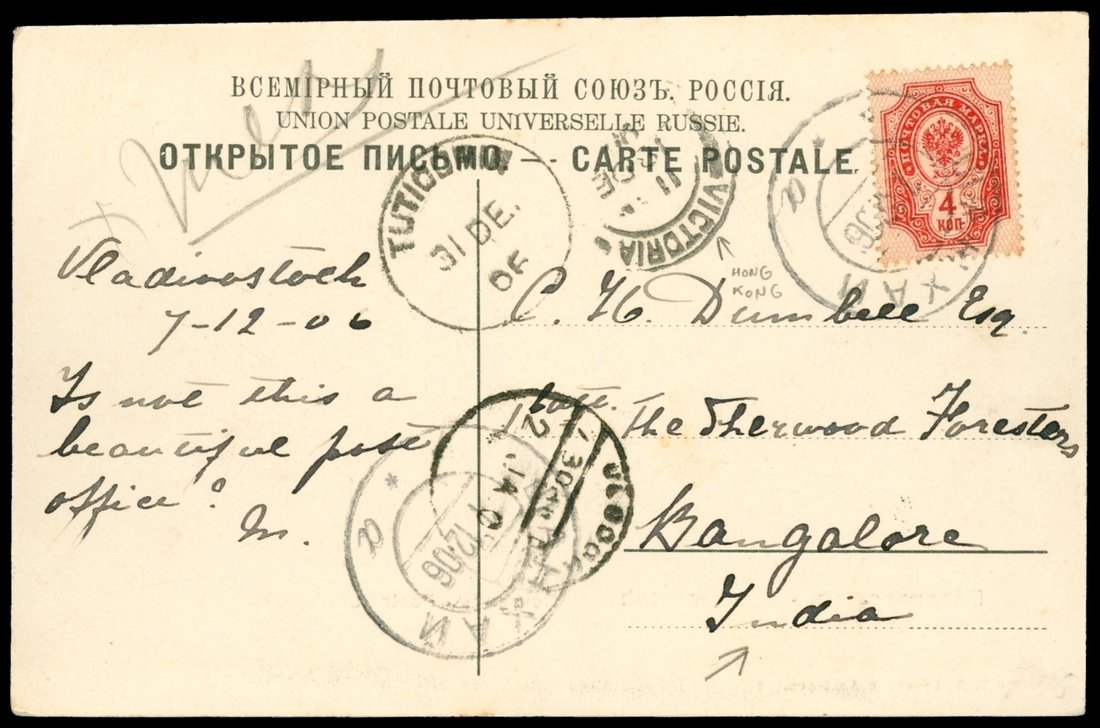 ВСЕМІРНЫЙ ПОЧТОВЫЙ СОЮЗЪ. РОССІЯ.
UNION POSTALE UNIVERSELLE RUSSIE.
ОТКРЫТОЕ ПИСЬМО. — CARTE POSTALE.
ПОЧТОВАЯ МАРКА
4
КОП.
TUTICORIN
31 DE.
06
VICTORIA
HONG
KONG
ХАЙ
Vladivostock
7-12-06
C. H. Dumbell Esq.
Is not this a
beautiful post
office?
M.
1 Batt. The Sherwood Foresters
Bangalore
India
2 JA 0
7 30AM
12.06
ХАЙ